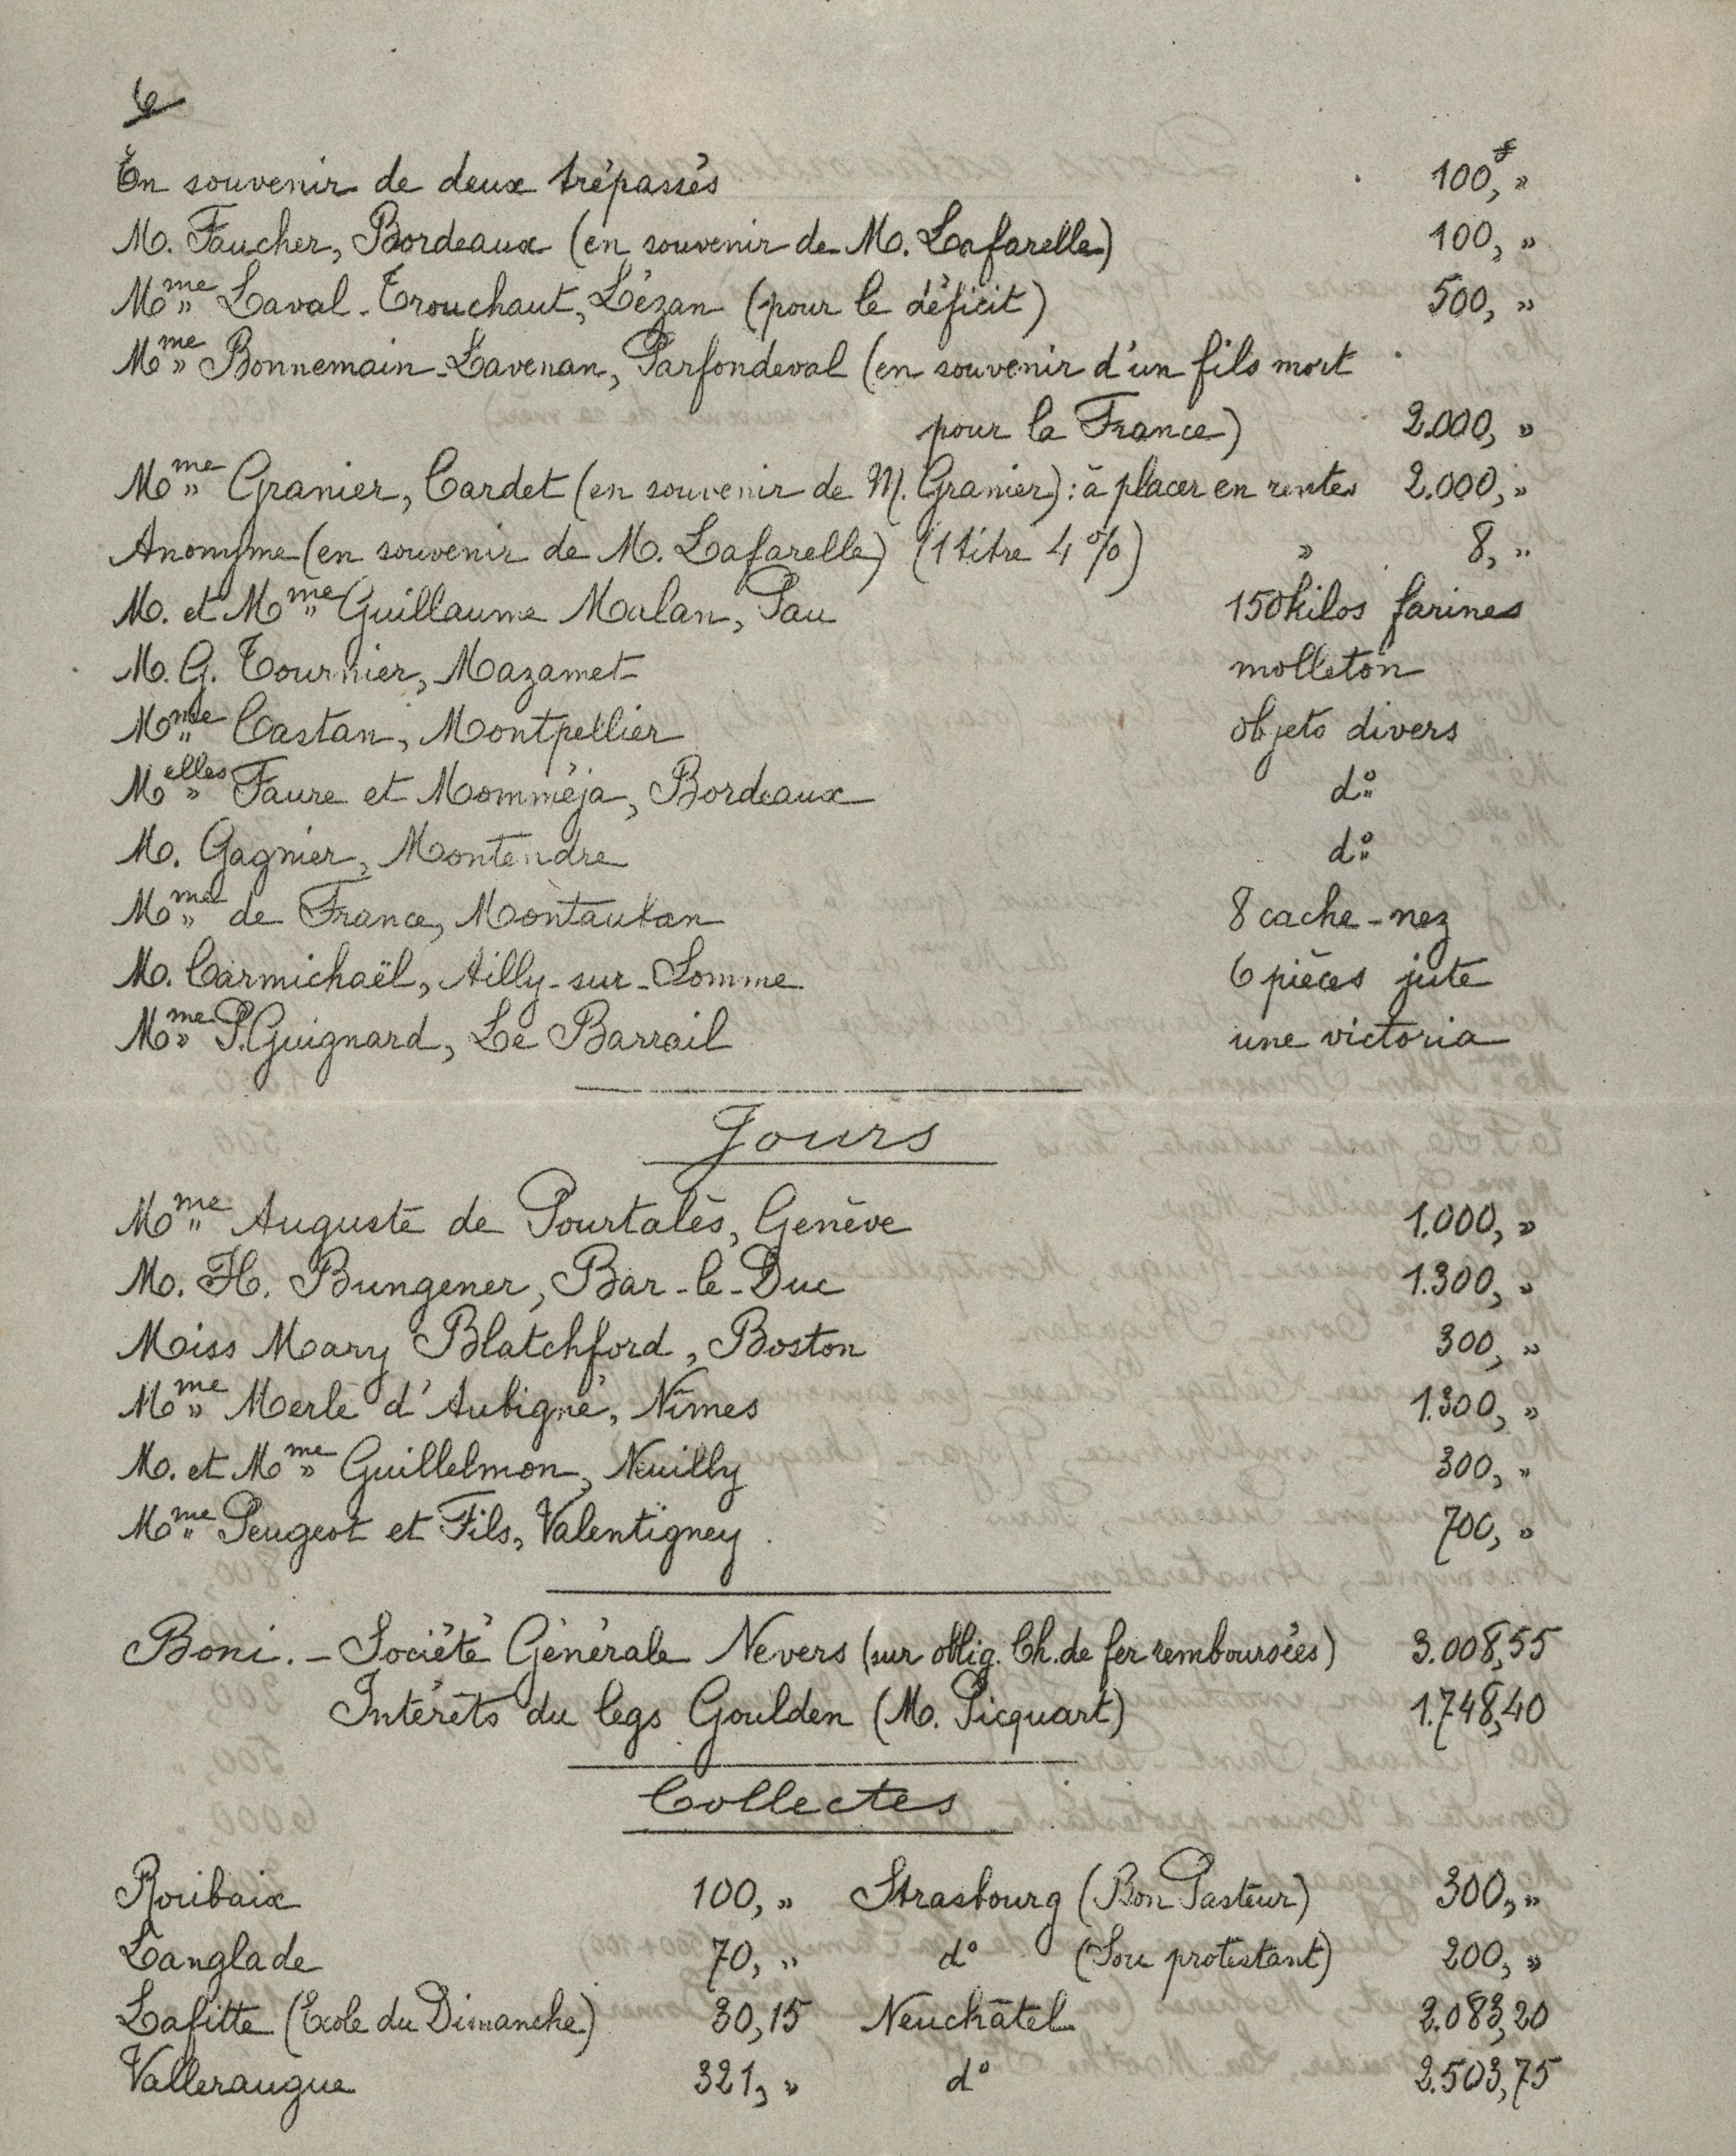 6
En souvenir de deux trépassés 100f, »
M. Faucher, Bordeaux (en souvenir de M. Lafarelle) 100, »
Mme Laval-Trouchaut, Lézan (pour le déficit) 500, »
Mme Bonnemain-Lavenan, Parfondeval (en souvenir d'un fils mort
pour la France) 2.000, »
Mme Granier, Cardet (en souvenir de M. Granier): à placer en rentes 2.000, »
Anonyme (en souvenir de M. Lafarelle) (1 titre 4 %) » 8, »
M. et Mme Guillaume Malan, Pau 150 kilos farines
M. G. Tournier, Mazamet molleton
Mme Castan, Montpellier objets divers
Melles Faure et Momméja, Bordeaux do
M. Gagnier, Montendre do
Mme de France, Montauban 8 cache-nez
M. Carmichaël, Ailly-sur-Somme 6 pièces jute
Mme P. Guignard, Le Barrail une victoria
Jours
Mme Auguste de Pourtalès, Genève 1.000, »
M. H. Bungener, Bar-le-Duc 1.300, »
Miss Mary Blatchford, Boston 300, »
Mme Merle d'Aubigné, Nîmes 1.300, »
M. et Mme Guillelmon, Neuilly 300, »
Mme Peugeot et Fils, Valentigney 700, »
Boni. - Société Générale Nevers (sur oblig. Ch. de fer remboursées) 3.008,55
Intérêts du legs Goulden (M. Picquart) 1.748,40
Collectes
Roubaix 100, » Strasbourg (Bon Pasteur) 300, »
Langlade 70, » do (Sou protestant) 200, »
Lafitte (Ecole du Dimanche) 30,15 Neuchâtel 2.083,20
Valleraugue 321, » do 2.503,75